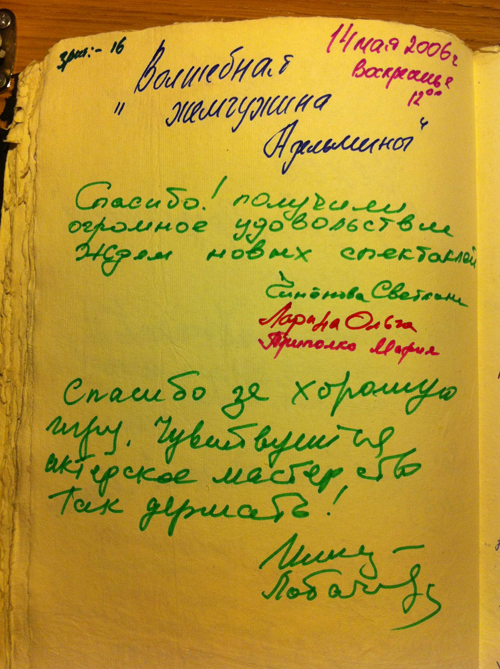 зрит:- 16
14 мая 2006 г
Воскресенье
12 00
Волшебная
"жемчужина
Адельмины"
Спасибо! получили
огромное удовольствие
Ждем новых спектаклей
Светлана
Ларина Ольга
Триполко Мария
Спасибо за хорошую
игру. Чувствуется
актерское мастерство
Так держать!